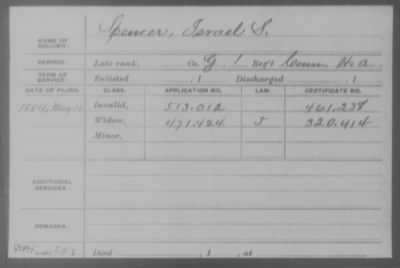 NAME OF SOLDIER: Spencer, Israel S.
SERVICE: Late rank, Co. G, 1 Reg't Conn. H. a.
TERM OF SERVICE: Enlisted , 1 Discharged , 1
DATE OF FILING. CLASS. APPLICATION NO. LAW. CERTIFICATE NO.
1884, May Invalid, 513.012 461.238
Widow, 471.424 J 320.414
Minor,
ADDITIONAL SERVICES:
REMARKS:
Died , 1 , at